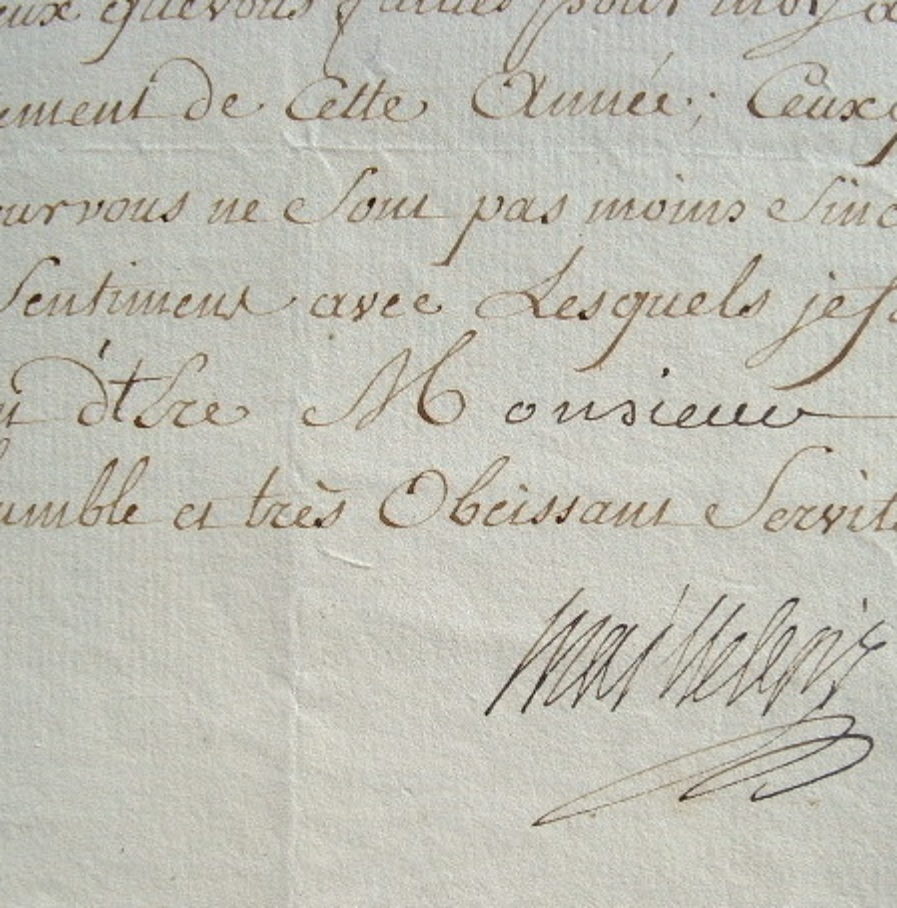 eux que vous faittes pour moy a
ement de Cette Année; Ceux q
our vous ne Sont pas moins Sinc
Sentiment avec Lesquels je s
d'Estre Monsieur
humble et très Obeissant Servit